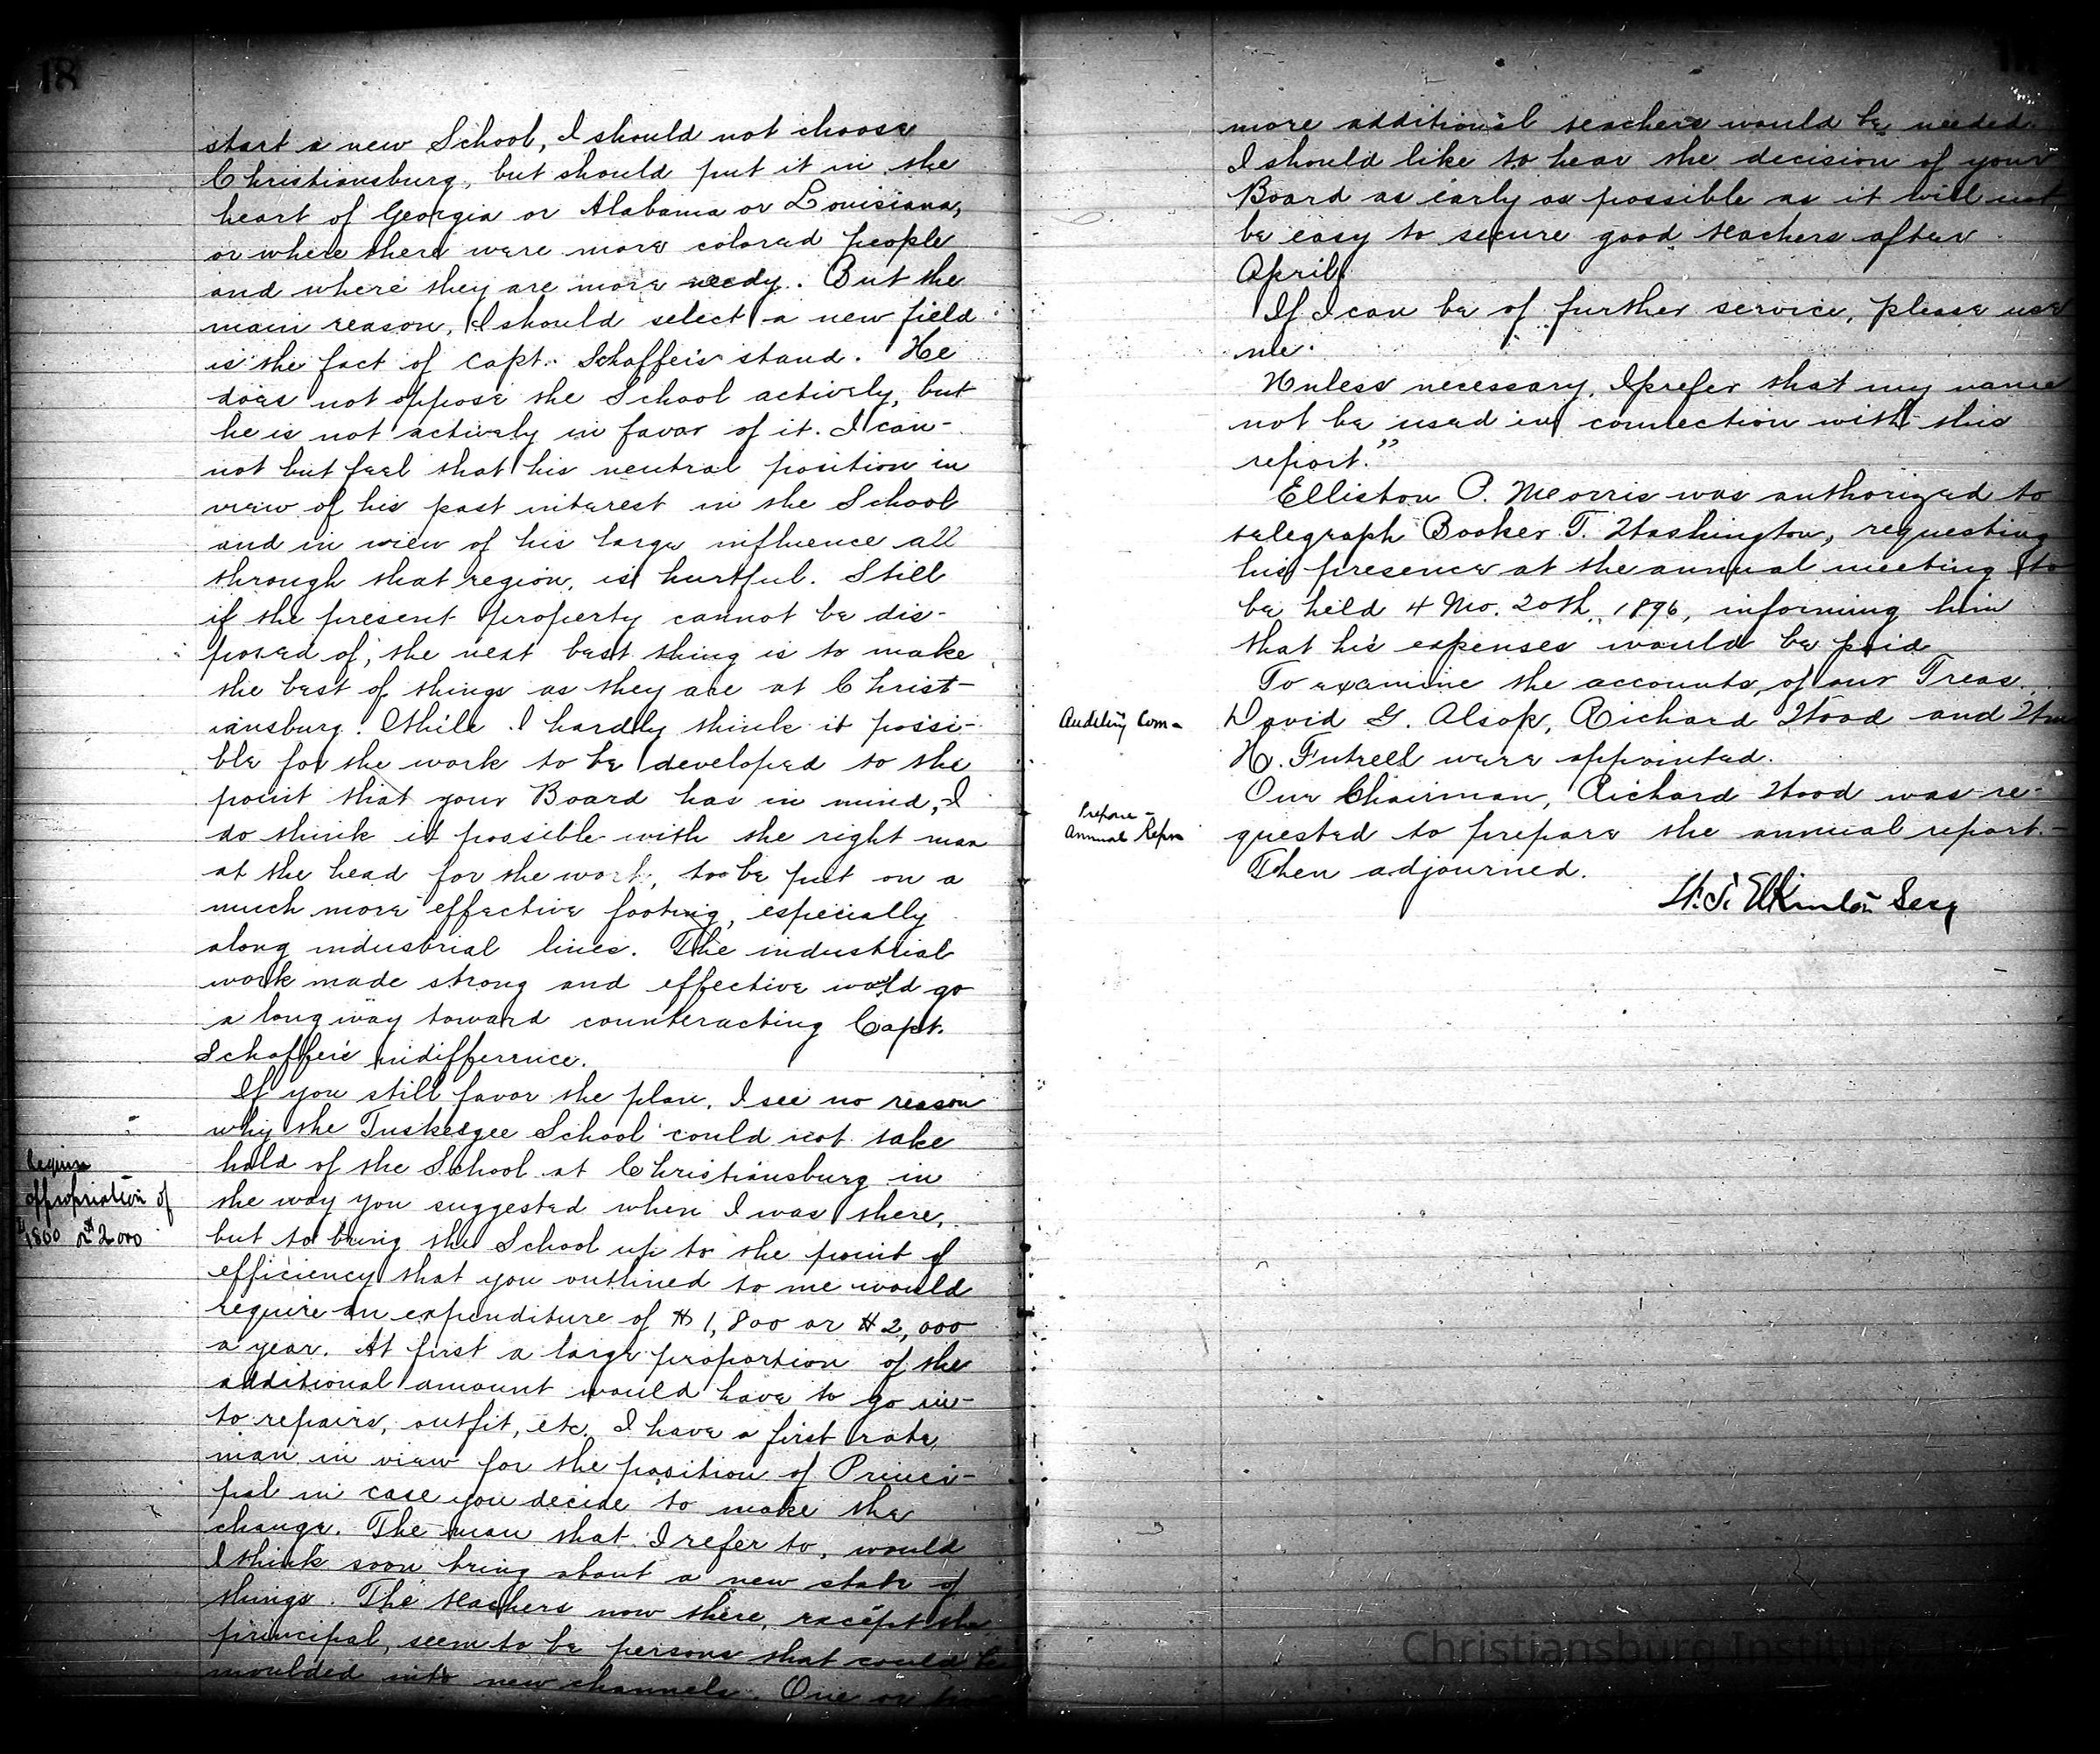 18
start a new School, I should not choose
Christiansburg, but should put it in the
heart of Georgia or Alabama or Louisiana,
or where there were more colored people
and where they are more needy. But the
main reason, I should select a new field
is the fact of Capt. Schaffer's stand. He
does not oppose the School actively, but
he is not actively in favor of it. I can-
not but feel that his neutral position in
view of his past interest in the School
and in view of his large influence all
through that region, is hurtful. Still
if the present property cannot be dis-
posed of, the next best thing is to make
the best of things as they are at Christ-
iansburg. While I hardly think it possi-
ble for the work to be developed to the
point that your Board has in mind, I
do think it possible with the right man
at the head for the work, to be put on a
much more effective footing, especially
along industrial lines. The industrial
work made strong and effective would go
a long way toward counteracting Capt.
Schaffer's indifference.
If you still favor the plan, I see no reason
why the Tuskeegee School could not take
hold of the School at Christiansburg in
the way you suggested when I was there,
but to bring the School up to the point of
efficiency that you outlined to me would
require an expenditure of $1,800 or $2,000
a year. At first a large proportion of the
additional amount would have to go in-
to repairs, outfit, etc. I have a first rate
man in view for the position of Princi-
pal in case you decide to make the
change. The man that I refer to, would
I think soon bring about a new state of
things. The teachers now there, except the
principal, seem to be persons that could be
moulded into new channels. One or two
Require
appropriation of
$1800 or $2000
more additional teachers would be needed.
I should like to hear the decision of your
Board as early as possible as it will not
be easy to secure good teachers after
April.
If I can be of further service, please use
me.
Unless necessary, I prefer that my name
not be used in connection with this
report."
Elliston P. Morris was authorized to
telegraph Booker T. Washington, requesting
his presence at the annual meeting to
be held 4 Mo. 20th, 1896, informing him
that his expenses would be paid
To examine the accounts, of our Treas.
Auditing Com-
David G. Alsop, Richard Wood and Wm
H. Futrell were appointed.
Our Chairman, Richard Wood was re-
Prepare -
Annual Repo
quested to prepare the annual report.-
Then adjourned.
W. T. Elkinton Secy
Christiansburg Institute